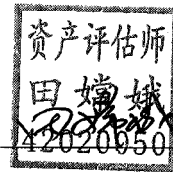 资产评估师
田嫦娥
42020050